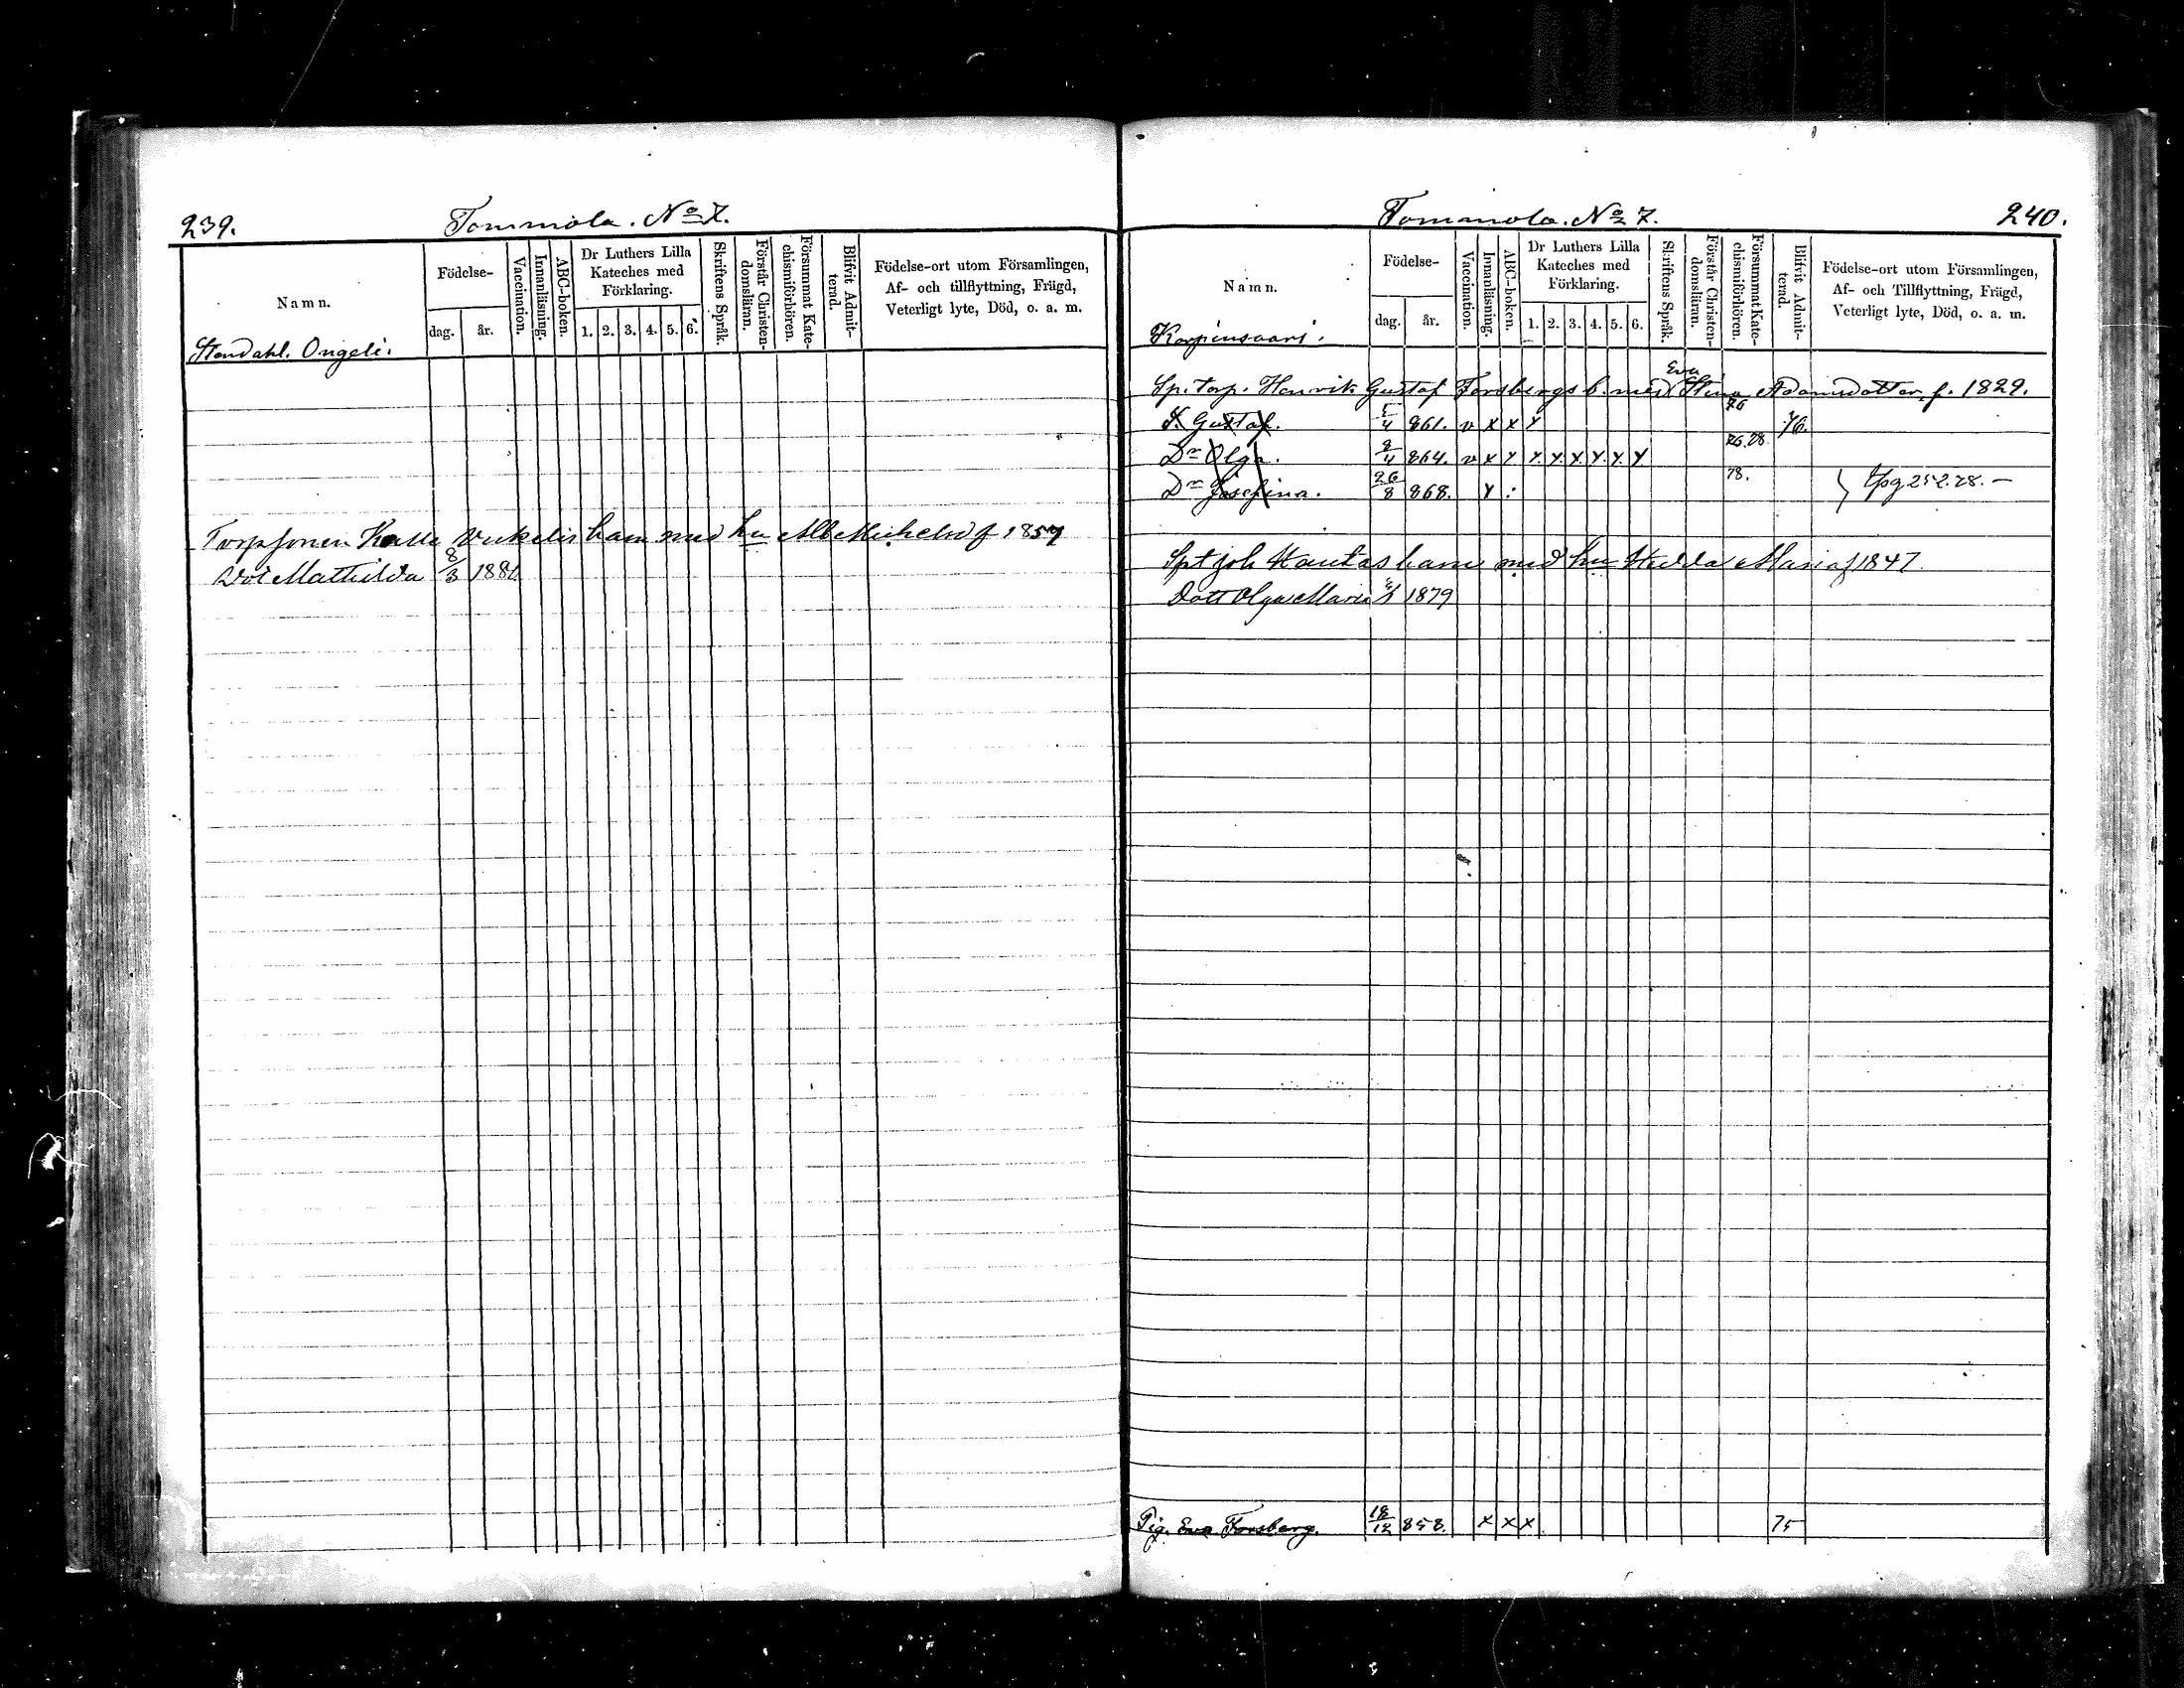 239.
Tommola. No 7.
Namn.
Födelse-
dag. år.
Vaccination.
Innanläsning.
ABC-boken.
Dr Luthers Lilla Kateches med Förklaring.
1. 2. 3. 4. 5. 6.
Skriftens Språk.
Förstår Christendomsläran.
Försummat Katechismiförhören.
Blifvit Admitterad.
Födelse-ort utom Församlingen,
Af- och tillflyttning, Frägd,
Veterligt lyte, Död, o. a. m.
Stendahl. Ongeli.
Torpsonen Kalle barn med hu Alb Michelsd f 1857
Dot Mathilda 8/3 1881
Tommola. No 7.
240.
Namn.
Födelse-
dag. år.
Vaccination.
Innanläsning.
ABC-boken.
Dr Luthers Lilla
Kateches med
Förklaring.
1. 2. 3. 4. 5. 6.
Skriftens Språk.
Förstår Christen-
domsläran.
Försummat Kate-
chismiförhören.
Blifvit Admit-
terad.
Födelse-ort utom Församlingen,
Af- och Tillflyttning, Frägd,
Veterligt lyte, Död, o. a. m.
Korpinsaari.
Eva
Sp. torp. Henrik Gustaf Forsbergs b. med Stina Adamsdotter, f. 1829.
S. Gustaf. 861. v x x x 76 76.
Dr Olga. 864. v x x x x x x x x 76.78.
Dr Josefina. 26/8 868. x 78. tpg 252.78.
Spt joh barn med hu Hedda Maria f 1847.
Dott Olga Maria 1879
Pig. Eva Forsberg. 18/12 858. x x x 75